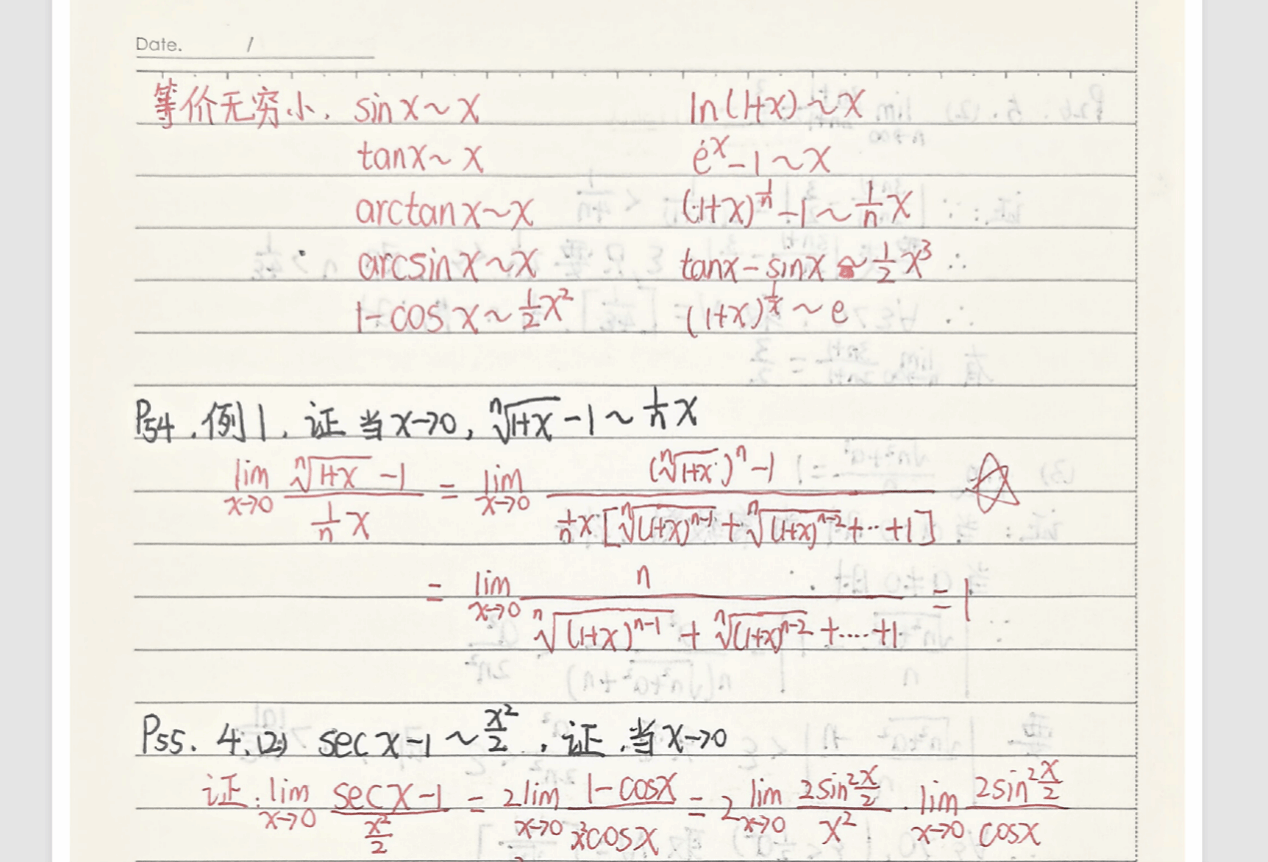 Date. /
等价无穷小. sinx~x ln(1+x)~x
tanx~x e^x-1~x
arctanx~x (1+x)^(1/n)-1~(1/n)x
arcsinx~x tanx-sinx~(1/2)x^3
1-cosx~(1/2)x^2 (1+x)^(1/x)~e
P54.例1.证当x→0, ⁿ√(1+x)-1~(1/n)x
lim x→0 (ⁿ√(1+x)-1)/((1/n)x) = lim x→0 ((ⁿ√(1+x))^n-1)/((1/n)x[ⁿ√((1+x)^(n-1))+ⁿ√((1+x)^(n-2))+…+1]) ☆
= lim x→0 n/(ⁿ√((1+x)^(n-1))+ⁿ√((1+x)^(n-2))+……+1) = 1
P55. 4.(2) secx-1~x^2/2,证.当x→0
证:lim x→0 (secx-1)/(x^2/2) = 2lim x→0 (1-cosx)/(x^2cosx) = 2lim x→0 (2sin^2(x/2))/x^2 · lim x→0 (2sin^2(x/2))/cosx